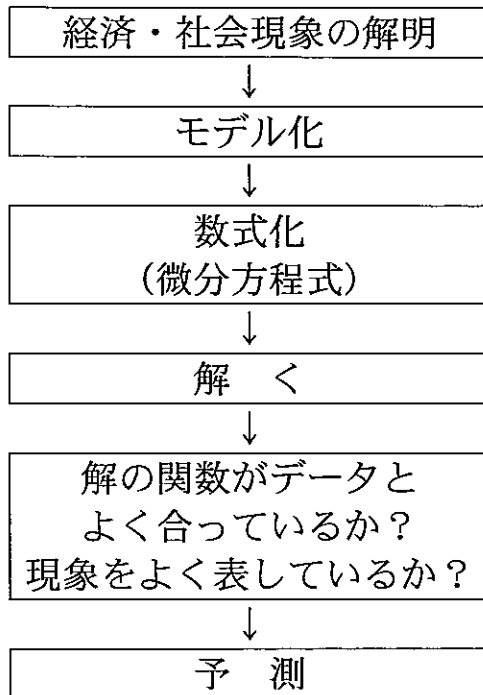 経済・社会現象の解明
↓
モデル化
↓
数式化
(微分方程式)
↓
解　く
↓
解の関数がデータと
よく合っているか？
現象をよく表しているか？
↓
予　測